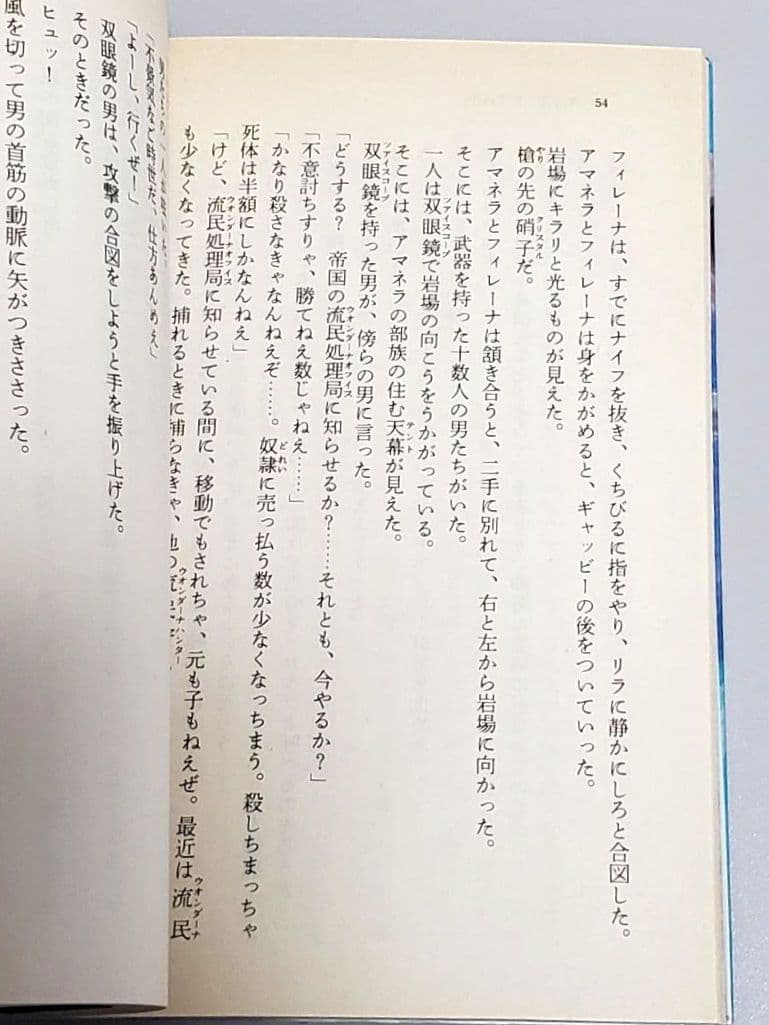 54
フィレーナは、すでにナイフを抜き、くちびるに指をやり、リラに静かにしろと合図した。
アマネラとフィレーナは身をかがめると、ギャッビーの後をついていった。
岩場にキラリと光るものが見えた。
槍の先の硝子だ。
アマネラとフィレーナは頷き合うと、二手に別れて、右と左から岩場に向かった。
そこには、武器を持った十数人の男たちがいた。
一人は双眼鏡で岩場の向こうをうかがっている。
そこには、アマネラの部族の住む天幕が見えた。
双眼鏡を持った男が、傍らの男に言った。
「どうする？　帝国の流民処理局に知らせるか？……それとも、今やるか？」
「不意討ちすりゃ、勝てねえ数じゃねえ……」
「かなり殺さなきゃなんねえぞ……。奴隷に売っ払う数が少なくなっちまう。殺しちまっちゃ
死体は半額にしかなんねえ」
「けど、流民処理局に知らせている間に、移動でもされちゃ、元も子もねえぜ。最近は流民
も少なくなってきた。捕れるときに捕らなきゃ、他の流
「不景気なご時世だ、仕方あんめえ」
「よーし、行くぜ！」
双眼鏡の男は、攻撃の合図をしようと手を振り上げた。
そのときだった。
ヒュッ！
風を切って男の首筋の動脈に矢がつきささった。